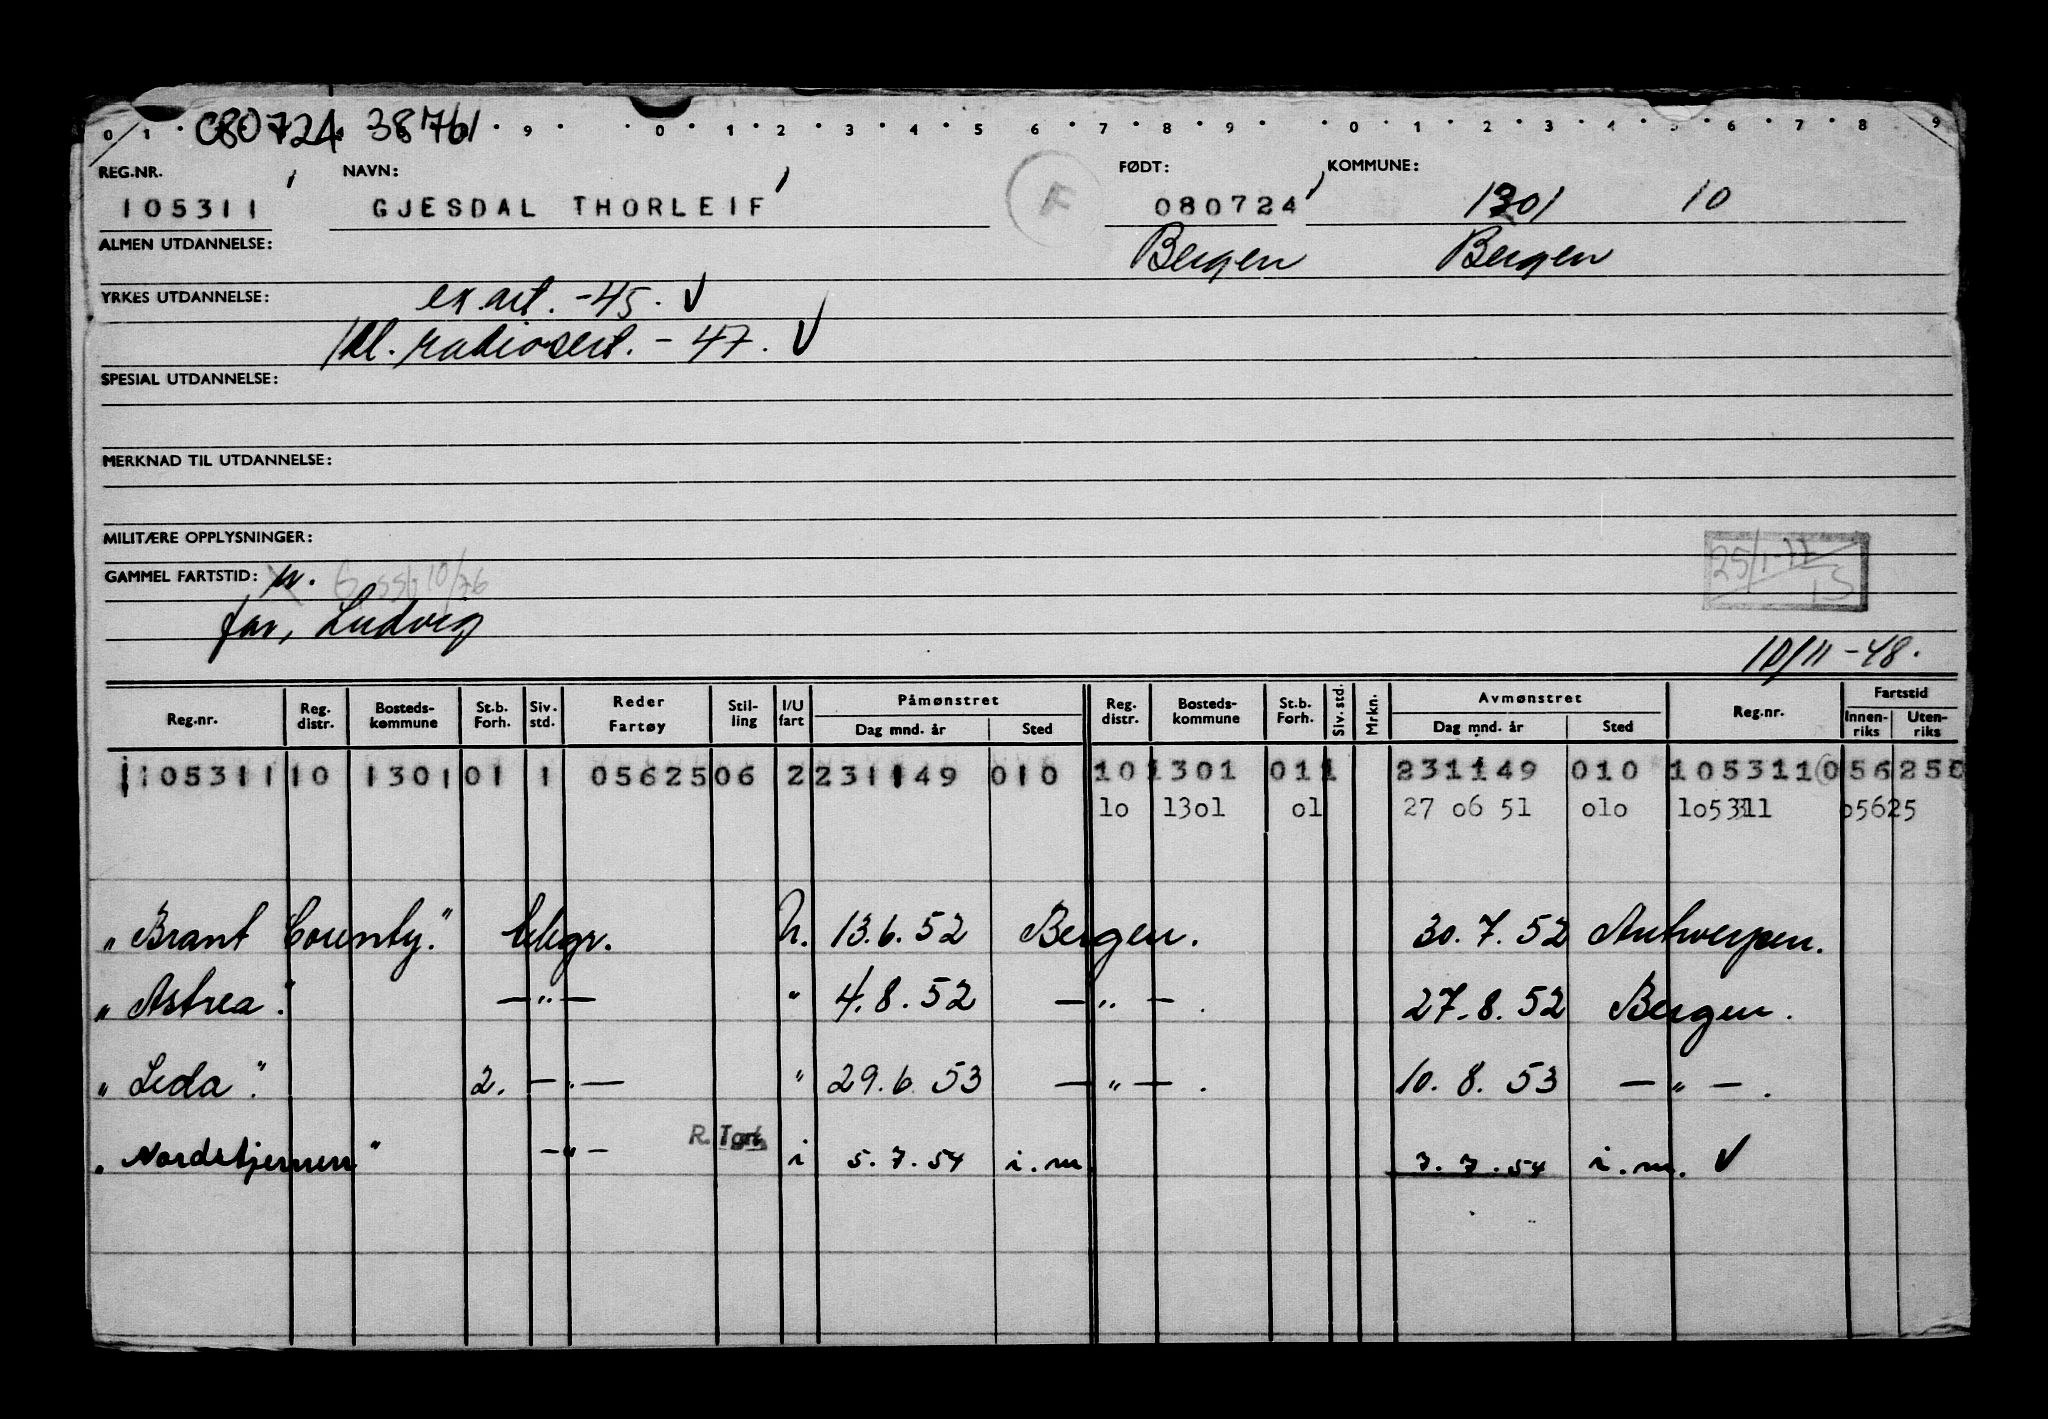 080724 38761
0 1 9 0 1 2 3 4 5 6 7 8 9 0 1 2 3 4 5 6 7 8 9
REG.NR. NAVN: FØDT: KOMMUNE:
105311 GJESDAL THORLEIF 080724 1301 10
ALMEN UTDANNELSE: Bergen Bergen
YRKES UTDANNELSE: ex art. -45. √
1 kl. radiosert. - 47. √
SPESIAL UTDANNELSE:
MERKNAD TIL UTDANNELSE:
MILITÆRE OPPLYSNINGER:
25/1-77
GAMMEL FARTSTID: 10/76
15
far, Ludvig
10/11 -48.
Reg.nr. Reg. distr. Bosteds-kommune St.b. Forh. Siv. std. Reder Fartøy Stil-ling I/U fart Påmønstret Dag mnd. år Sted Reg. distr. Bosteds-kommune St.b. Forh. Siv. std. Mrkn. Avmønstret Dag mnd. år Sted Reg.nr. Fartstid Innen-riks Uten-riks
105311 10 1301 01 1 05625 06 2 231149 010 10 1301 01 1 231149 010 105311 056250
10 1301 01 27 06 51 010 105311 05625
"Brant County". tlgr. U. 13.6.52 Bergen. 30.7.52 Antwerpen.
"Astrea". —"— " 4.8.52 —"— . 27.8.52 Bergen.
"Leda". 2. —"— " 29.6.53 —"— . 10.8.53 —"— .
R. Tgrf.
"Nordstjernen" —"— i 5.7.54 i.m. 7.7.54 i.m. √